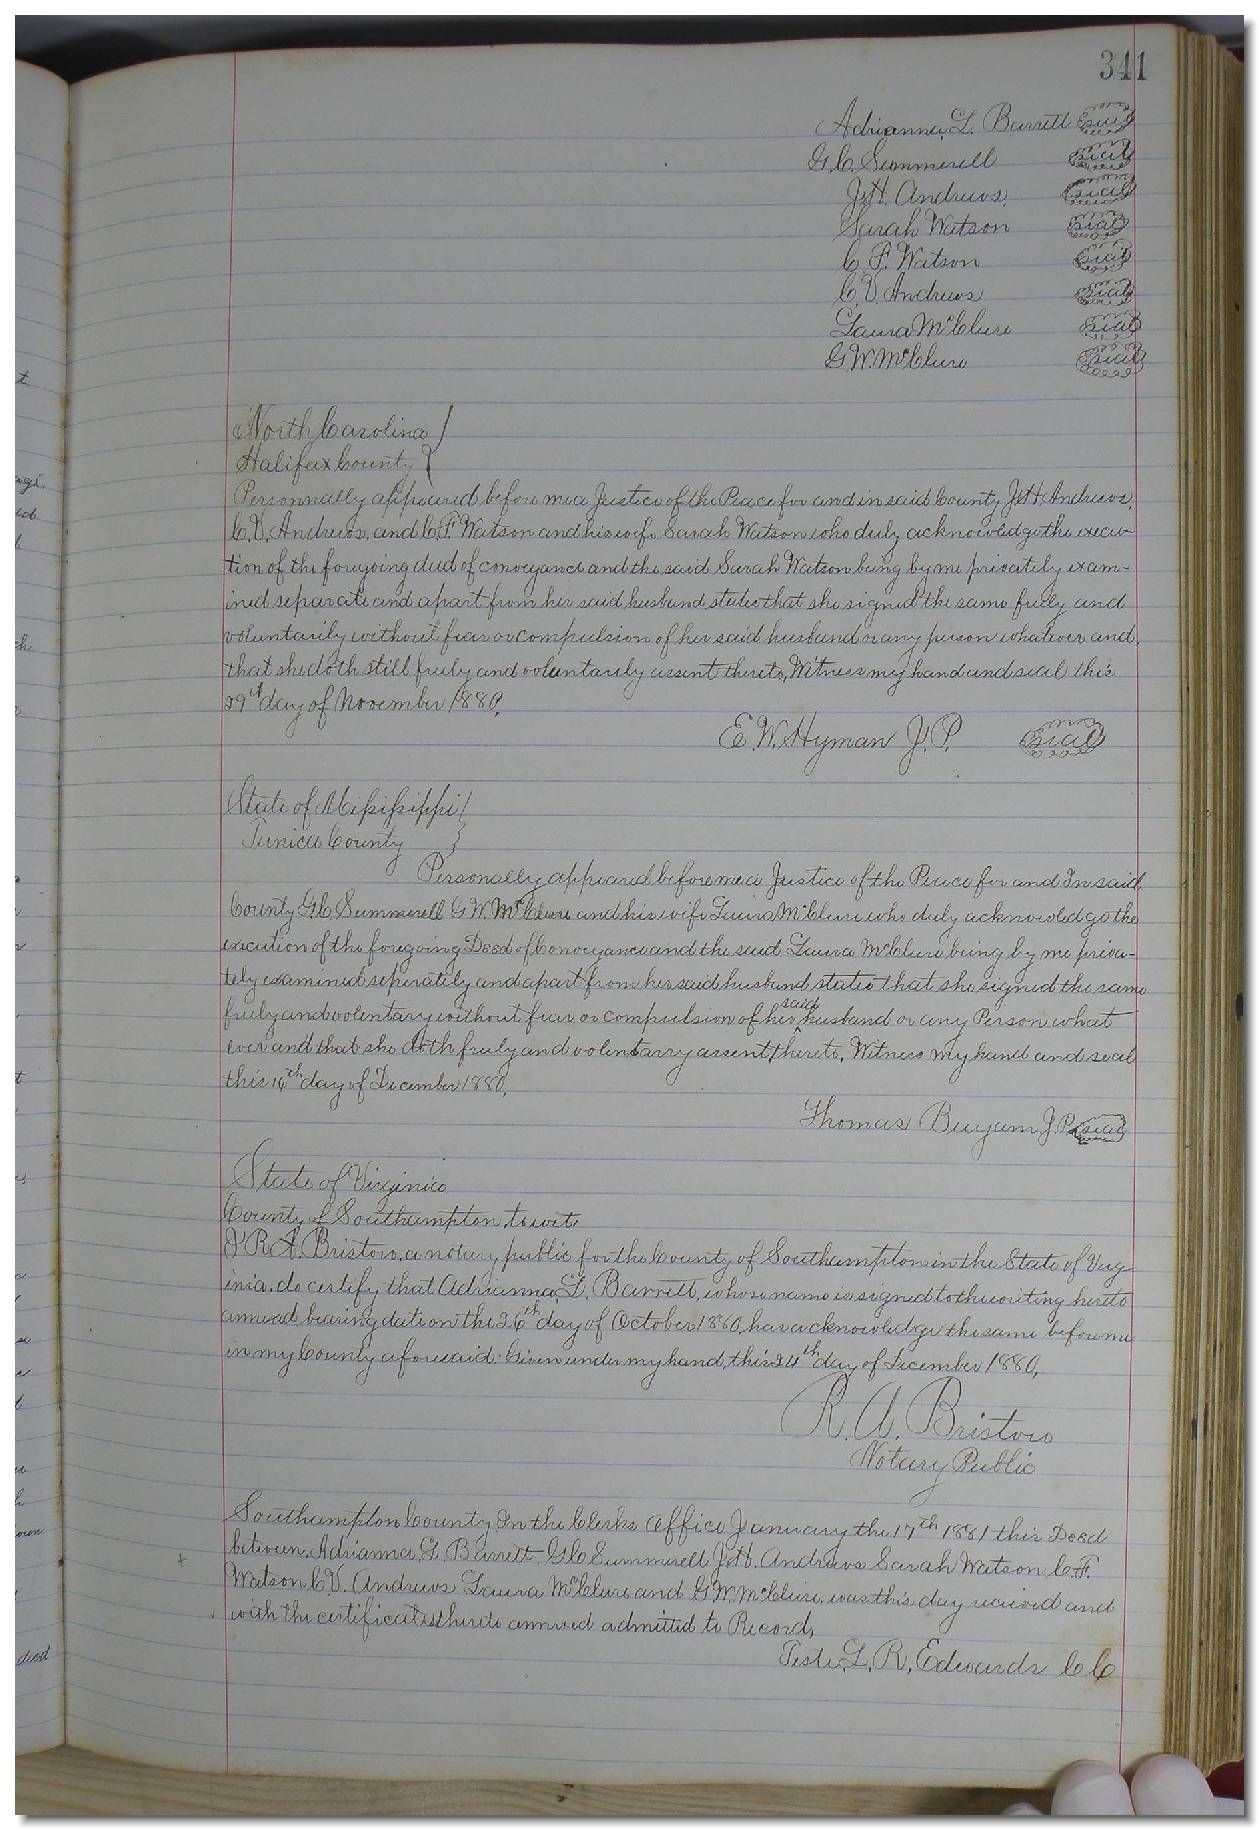 341
Adrianna, L. Barrett Seal
G. C. Summerell Seal
J. H. Andrews, Seal
Sarah Watson Seal
C. F. Watson Seal
C. V. Andrews Seal
Laura McClure Seal
G W. McClure Seal
North Carolina
Halifax County
Personnally appeared before me a Justice of the Peace for and in said County J. H. Andrews,
C. V. Andrews, and C. F. Watson and his wife Sarah Watson who duly acknowledge the execu-
tion of the foregoing deed of conveyance and the said Sarah Watson being by me privately exam-
ined separate and apart from her said husband states that she signed the same freely and
voluntarily without fear or compulsion of her said husband or any person whatever and,
that she doth still freely and voluntarily assent thereto, Witness my hand and seal this
29th day of November 1880,
E. W. Hyman J. P. Seal
State of Mississippi
Tunica County
Personally appeared before me a Justice of the Peace for and In said,
County G C Summerell G W. McClure and his wife Laura McClure who duly acknowledge the
execution of the foregoing Deed of Conveyance and the said Laura McClure being by me priva-
tely examined seperately and apart from her said husband states that she signed the same
freely and volentary without fear or compulsion of her said husband or any Person what
ever and that she doth freely and volentarry assent thereto, Witness my hand and seal
this 16th day of December 1880,
Thomas J. P. Seal
State of Virginia
County of Southampton, to wit,
I R A. Bristow, a notary public, for the County of Southampton in the State of Virg
inia, do certify, that Adrianna, L. Barrett, whose name is signed to the writing hereto
annexed bearing date on the 26th day of October 1880, has acknowledge the same before me
in my County aforesaid. Given under my hand, this 24th day of December 1880,
R. A. Bristow
Notary Public
Southampton County In the Clerks Office January the 17th 1881 this Deed
between, Adrianna L Barrett, G C Summerell J. H. Andrews Sarah Watson C. F.
Watson C V. Andrews Laura McClure and G W. McClure, was this day received and
with the certificates thereto annexed admitted to Record,
Teste, L. R. Edwards C C